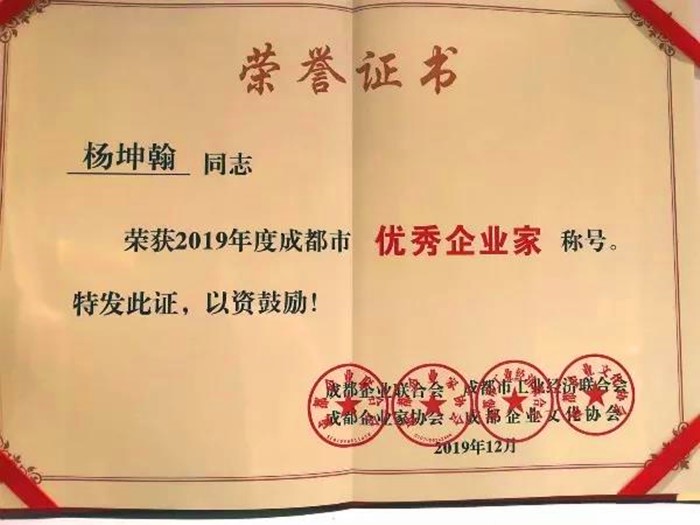 荣誉证书
杨坤翰 同志
荣获2019年度成都市 优秀企业家 称号。
特发此证，以资鼓励！
成都企业联合会 成都市工业经济联合会
成都企业家协会 成都企业文化协会
2019年12月